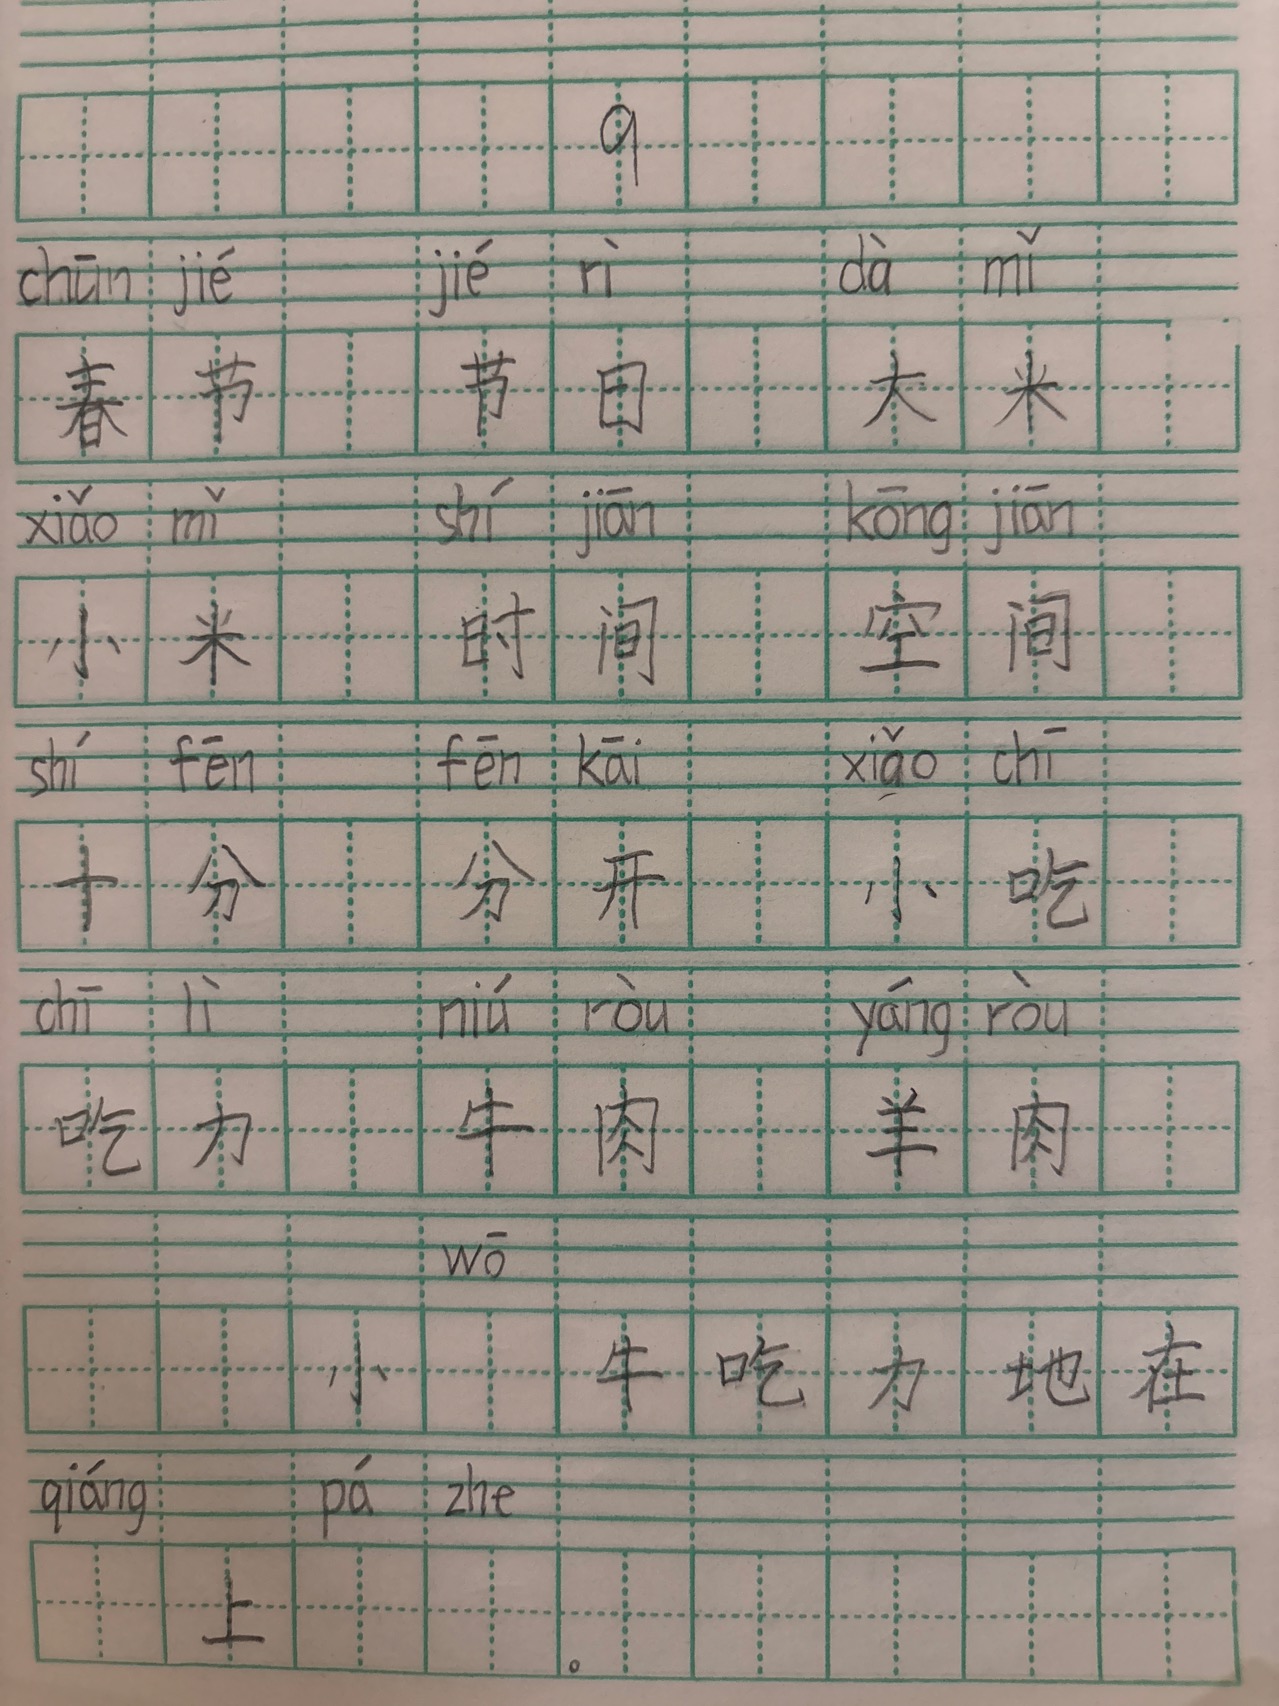 9
chūn jié jié rì dà mǐ
春节 节日 大米
xiǎo mǐ shí jiān kōng jiān
小米 时间 空间
shí fēn fēn kāi xiǎo chī
十分 分开 小吃
chī lì niú ròu yáng ròu
吃力 牛肉 羊肉
wō
小 牛吃力地在
qiáng pá zhe
上 。